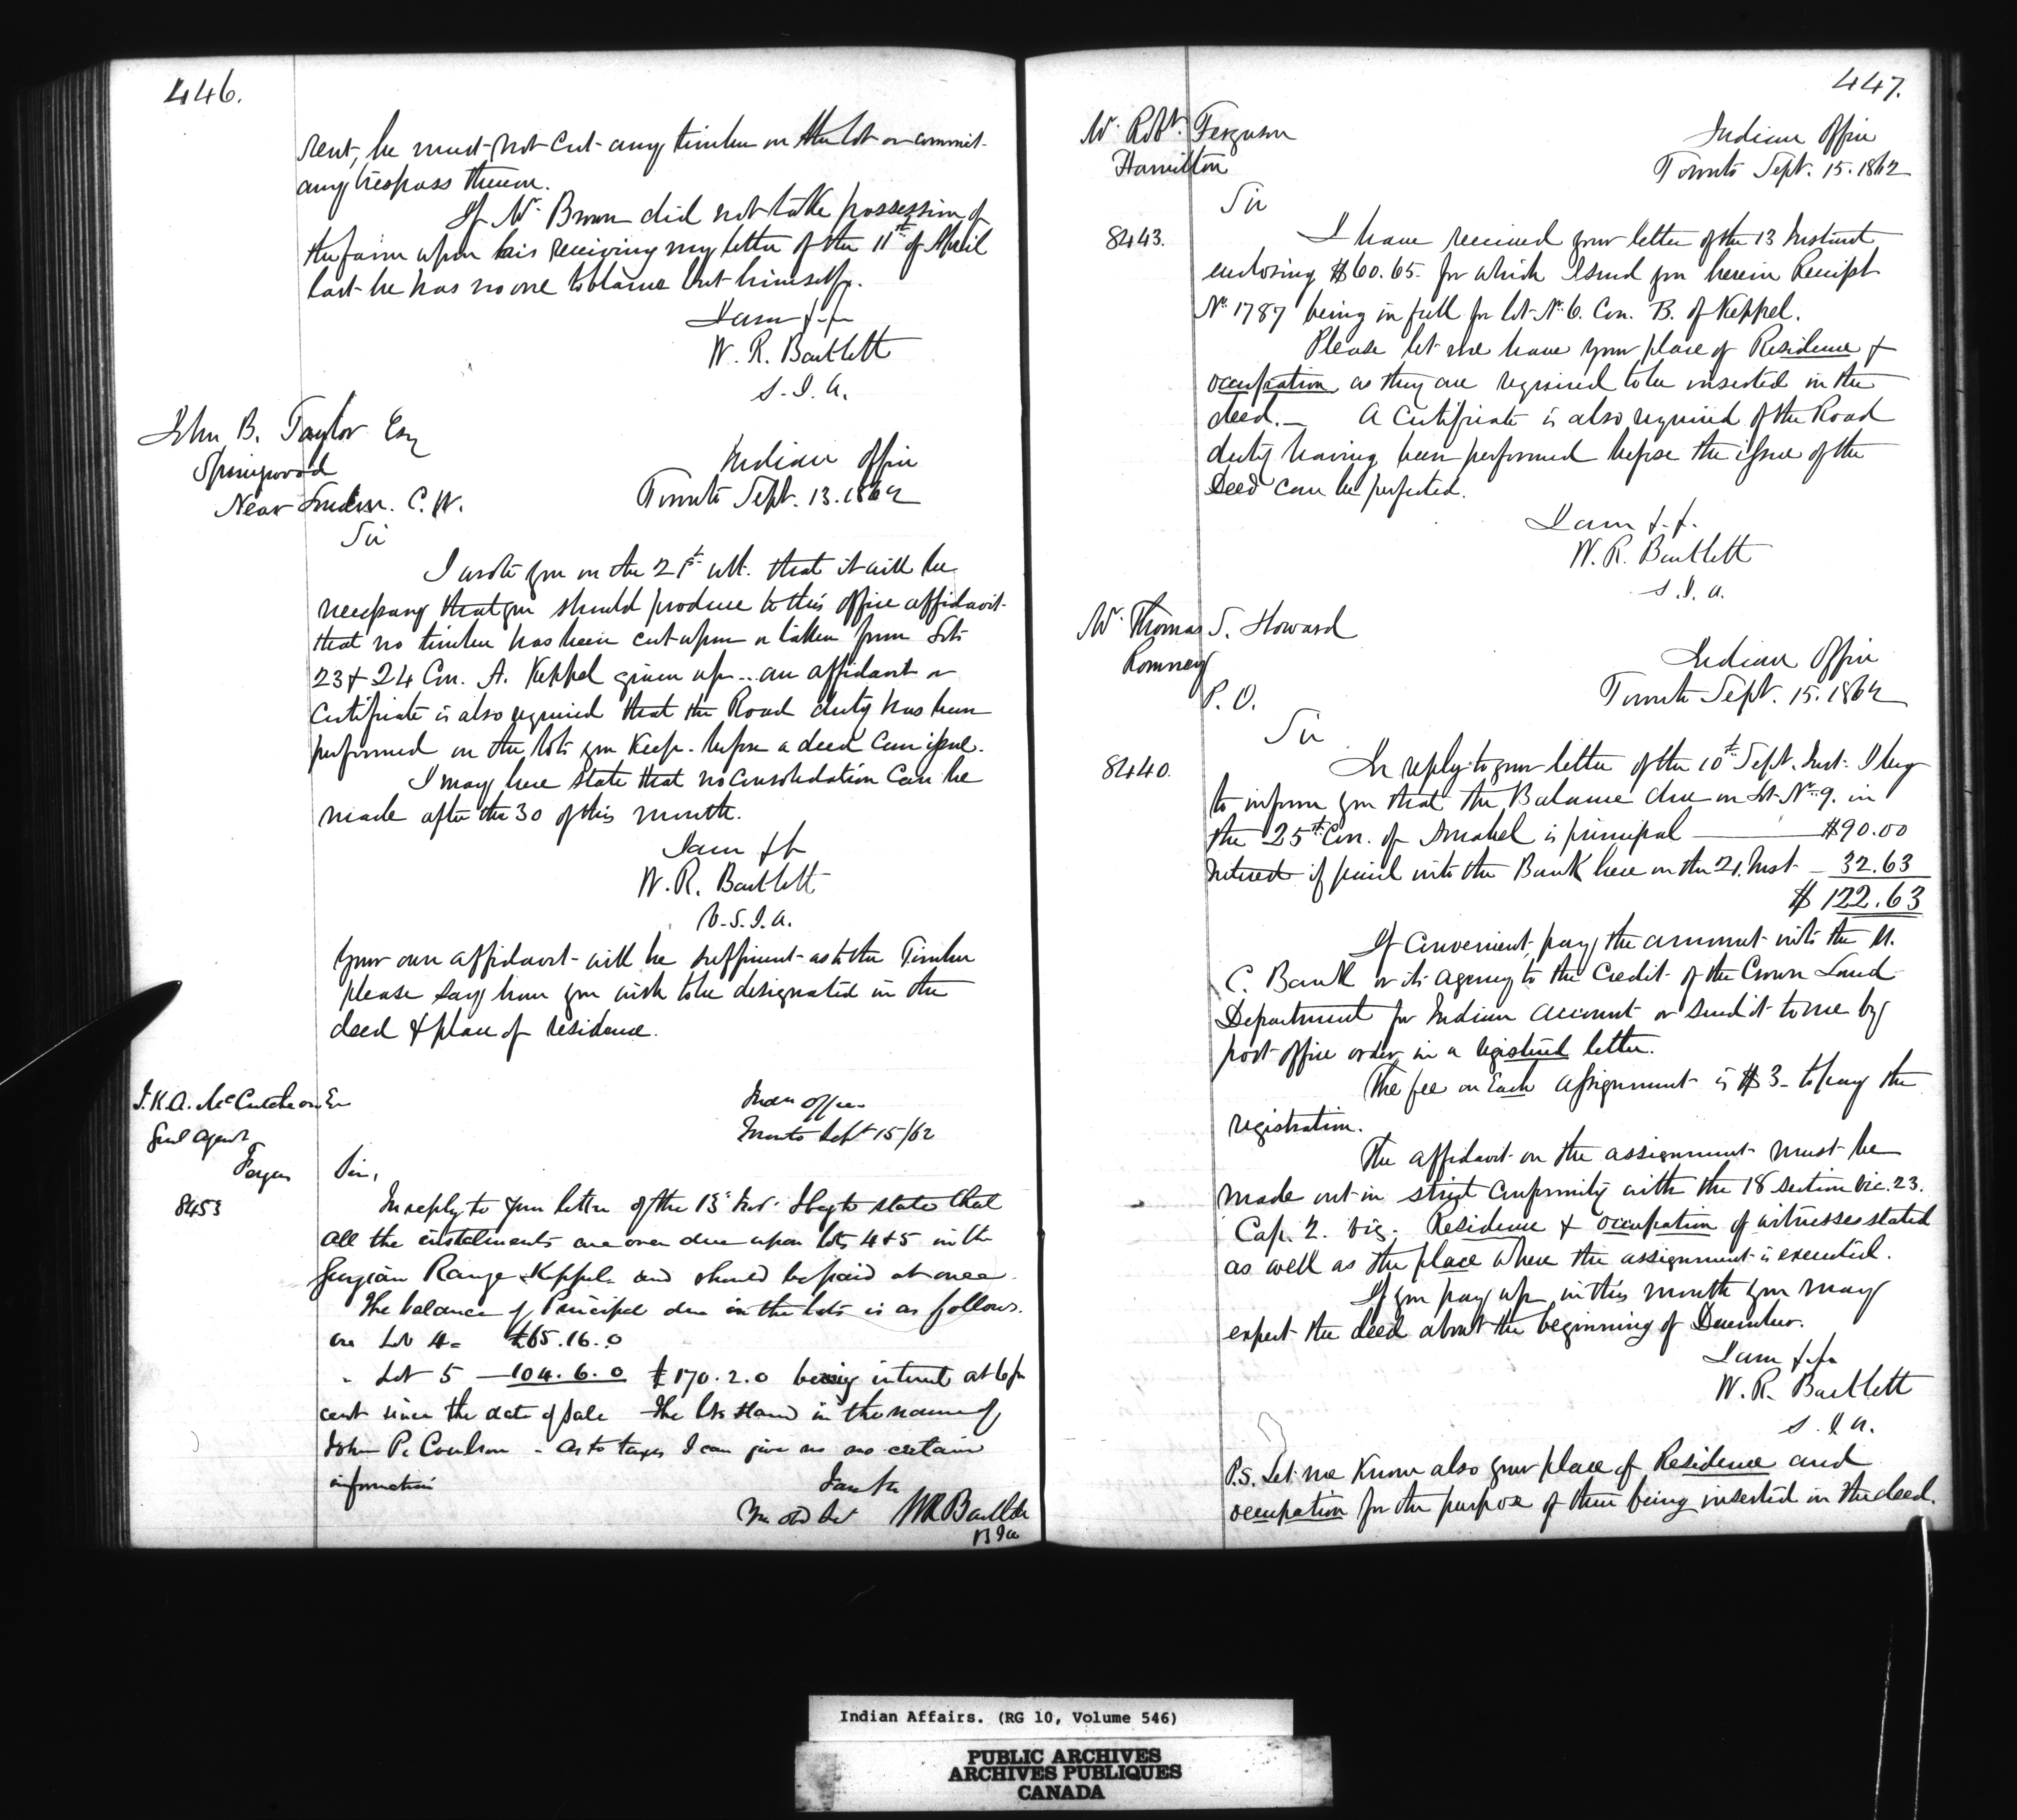 446.
rent, he must not cut any timber on the lot or commit
any trespass thereon.
If Mr. Brown did not take possession of
the farm upon his receiving my letter of the 11th of April
last he has no one to blame but himself.
I am &c
W. R. Bartlett
S. I. A.
John B. Taylor Esq
Springwood
Near London. C. W.
Indian Office
Toronto Sept. 13. 1862
Sir
I wrote you on the 21st ult. that it will be
necessary that you should produce to this office affidavit
that no timber has been cut upon or taken from Lots
23 & 24 Con. A. Keppel given up .. an affidavit or
Certificate is also required that the Road duty has been
performed on the lots you keep. before a deed can issue.
I may here state that no Consolidation Can be
made after the 30 of this month.
I am &c
W. R. Bartlett
V. S. I. A.
Your own affidavit will be sufficient as to the Timber
please say how you wish to be designated in the
deed & place of residence.
J. K. A. McCutcheon Es
Genl Agent
Fergus
Indn Office
Toronto Sept 15/62
Sir,
8453
In reply to your letter of the 13 Inst. I beg to state that
all the instalments are over due upon lots 4 & 5 in the
Georgian Range Keppel and should be paid at once.
The balance of Principal due in the lots is as follows.
on Lot 4 = £65.16.0
" Lot 5 — 104. 6. 0 £170. 2. 0 being interest at 6 pr
cent since the date of sale The lots stand in the name of
John P. Coulson - As to taxes I can give no no certain
information
I am &c
Yr obd Set WRBartlett
447.
Mr. Robt. Ferguson
Hamilton
Indian Office
Toronto Sept. 15. 1862
Sir
8443.
I have received your letter of the 13 Instant
enclosing $60.65. for which I send you herein Receipt
No. 1787 being in full for lot No. 6. Con. B. of Keppel.
Please let me have your place of Residence &
occupation as they are required to be inserted in the
deed. — A Certificate is also required of the Road
duty having been performed before the issue of the
Deed can be perfected.
I am &.c.
W. R. Bartlett
S. I. A.
Mr. Thomas S. Howard
Romney
P. O.
Indian Office
Toronto Sept. 15. 1862
Sir
8440.
In reply to your letter of the 10th Sept. Inst. I beg
to inform you that the Balance due on Lot No. 9. in
the 25th Con. of Amabel is principal — $90.00
Interest if paid into the Bank here on the 21. Inst — 32.63
$ 122.63
If Convenient, pay the amount into the U.
C. Bank or its agency to the Credit of the Crown Land
Department for Indian account or send it to me by
post office order in a registered letter.
The fee on Each assignment is $3 — to pay the
registration.
The affidavit on the assignment must be
made out in strict Conformity with the 18 section Vic. 23.
Cap. 2. viz. Residence & occupation of witnesses stated
as well as the place where the assignment is executed.
If you pay up in this month you may
expect the deed about the beginning of December.
I am &.c.
W. R. Bartlett
S. I. A.
P.S. Let me Know also your place of Residence and
occupation for the purpose of their being inserted in the deed.
Indian Affairs. (RG 10, Volume 546)
PUBLIC ARCHIVES
ARCHIVES PUBLIQUES
CANADA